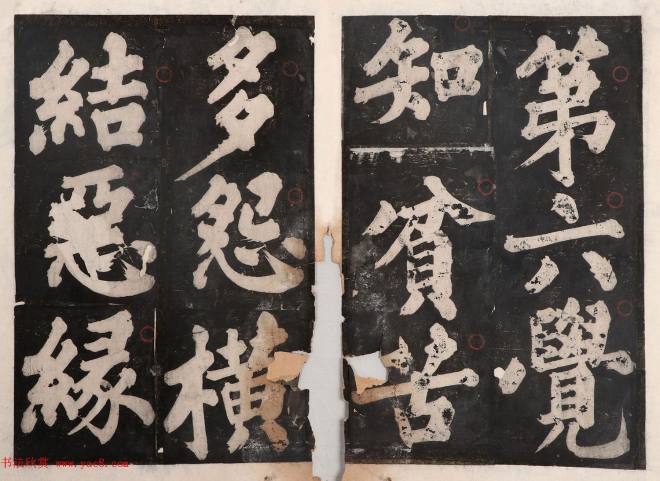 第六覺
知貧苦
多怨橫
結惡緣
书法欣赏 www.yac8.com